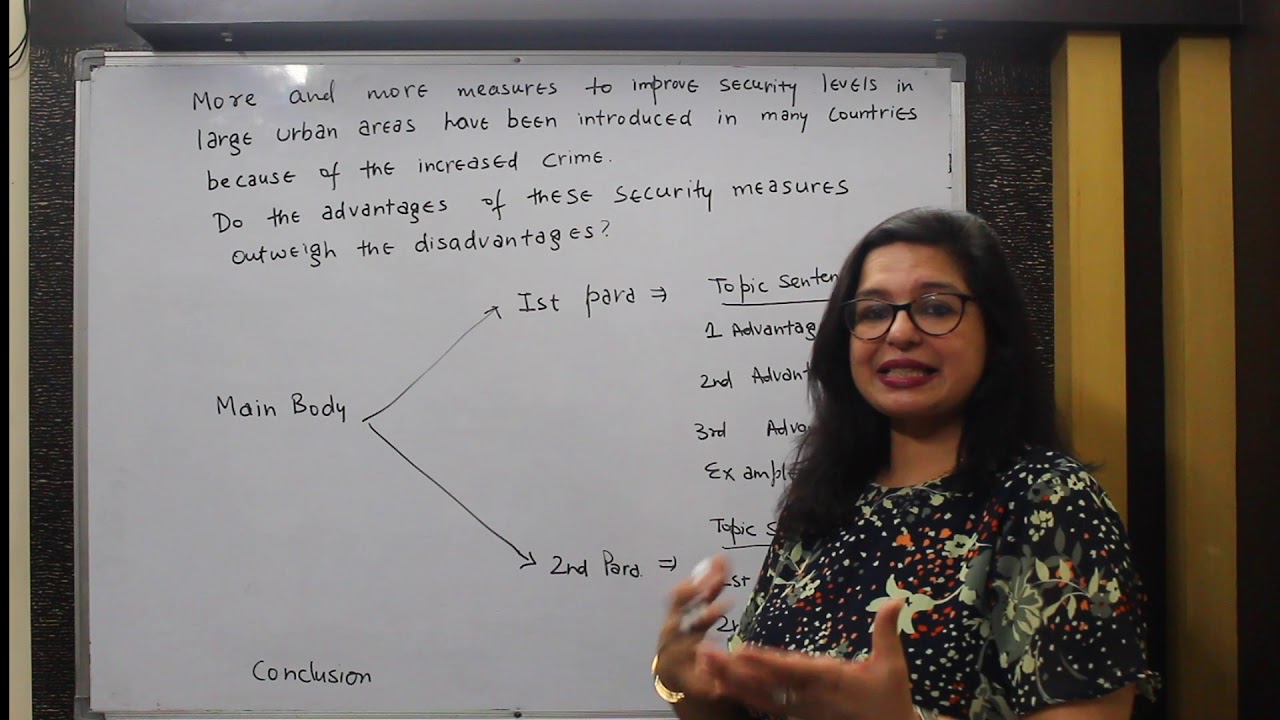 More and more measures to improve security levels in
large urban areas have been introduced in many countries
because of the increased crime.
Do the advantages of these security measures
outweigh the disadvantages?
Ist para ⇒
Topic Senten
1 Advantag
2nd Advant
3rd Advo
Example
Main Body
Topic S
2nd Para. ⇒
1st
2n
Conclusion